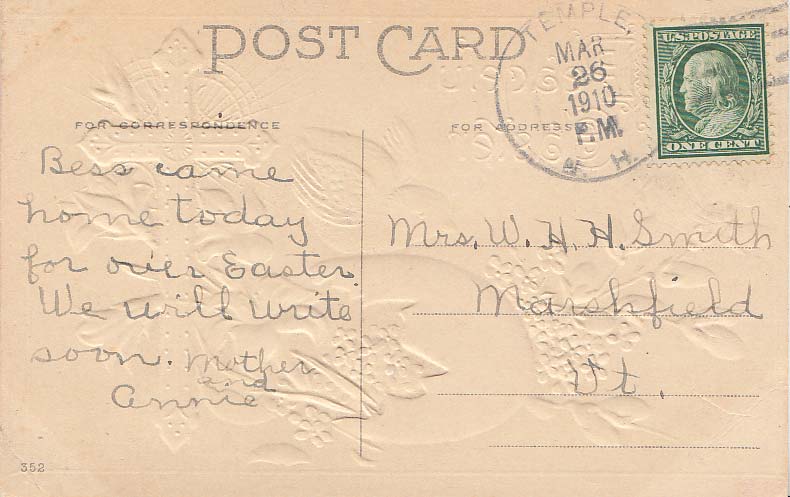 POST CARD
TEMPLE,
MAR
26
1910
P.M.
N. H.
U.S. POSTAGE
ONE CENT
FOR CORRESPONDENCE
FOR ADDRESS
Bess came
home today
for over Easter.
We will write
soon. Mother
and
Annie
Mrs. W. H. H. Smith
Marshfield
Vt.
352